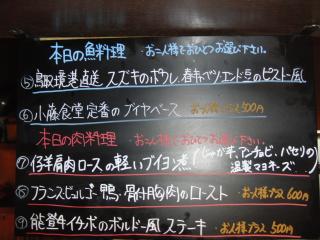 本日の魚料理 ・お二人様でおひとつお選び下さい。
⑤鳥取境港直送 スズキのポワレ、春キャベツとエンドウ豆のピストー風
⑥小藤食堂定番の ブイヤベース お一人様プラス500円
本日の肉料理 ・お二人様でおひとつお選び下さい。
⑦仔羊肩肉ロースの軽いブイヨン煮(じゃが芋、アンチョビ、パセリの
温製マヨネーズ)
⑧フランスビュルゴー鴨、骨付胸肉のロースト お一人様プラス600円
⑨能登牛イチボのボルドー風ステーキ ・お一人様プラス500円